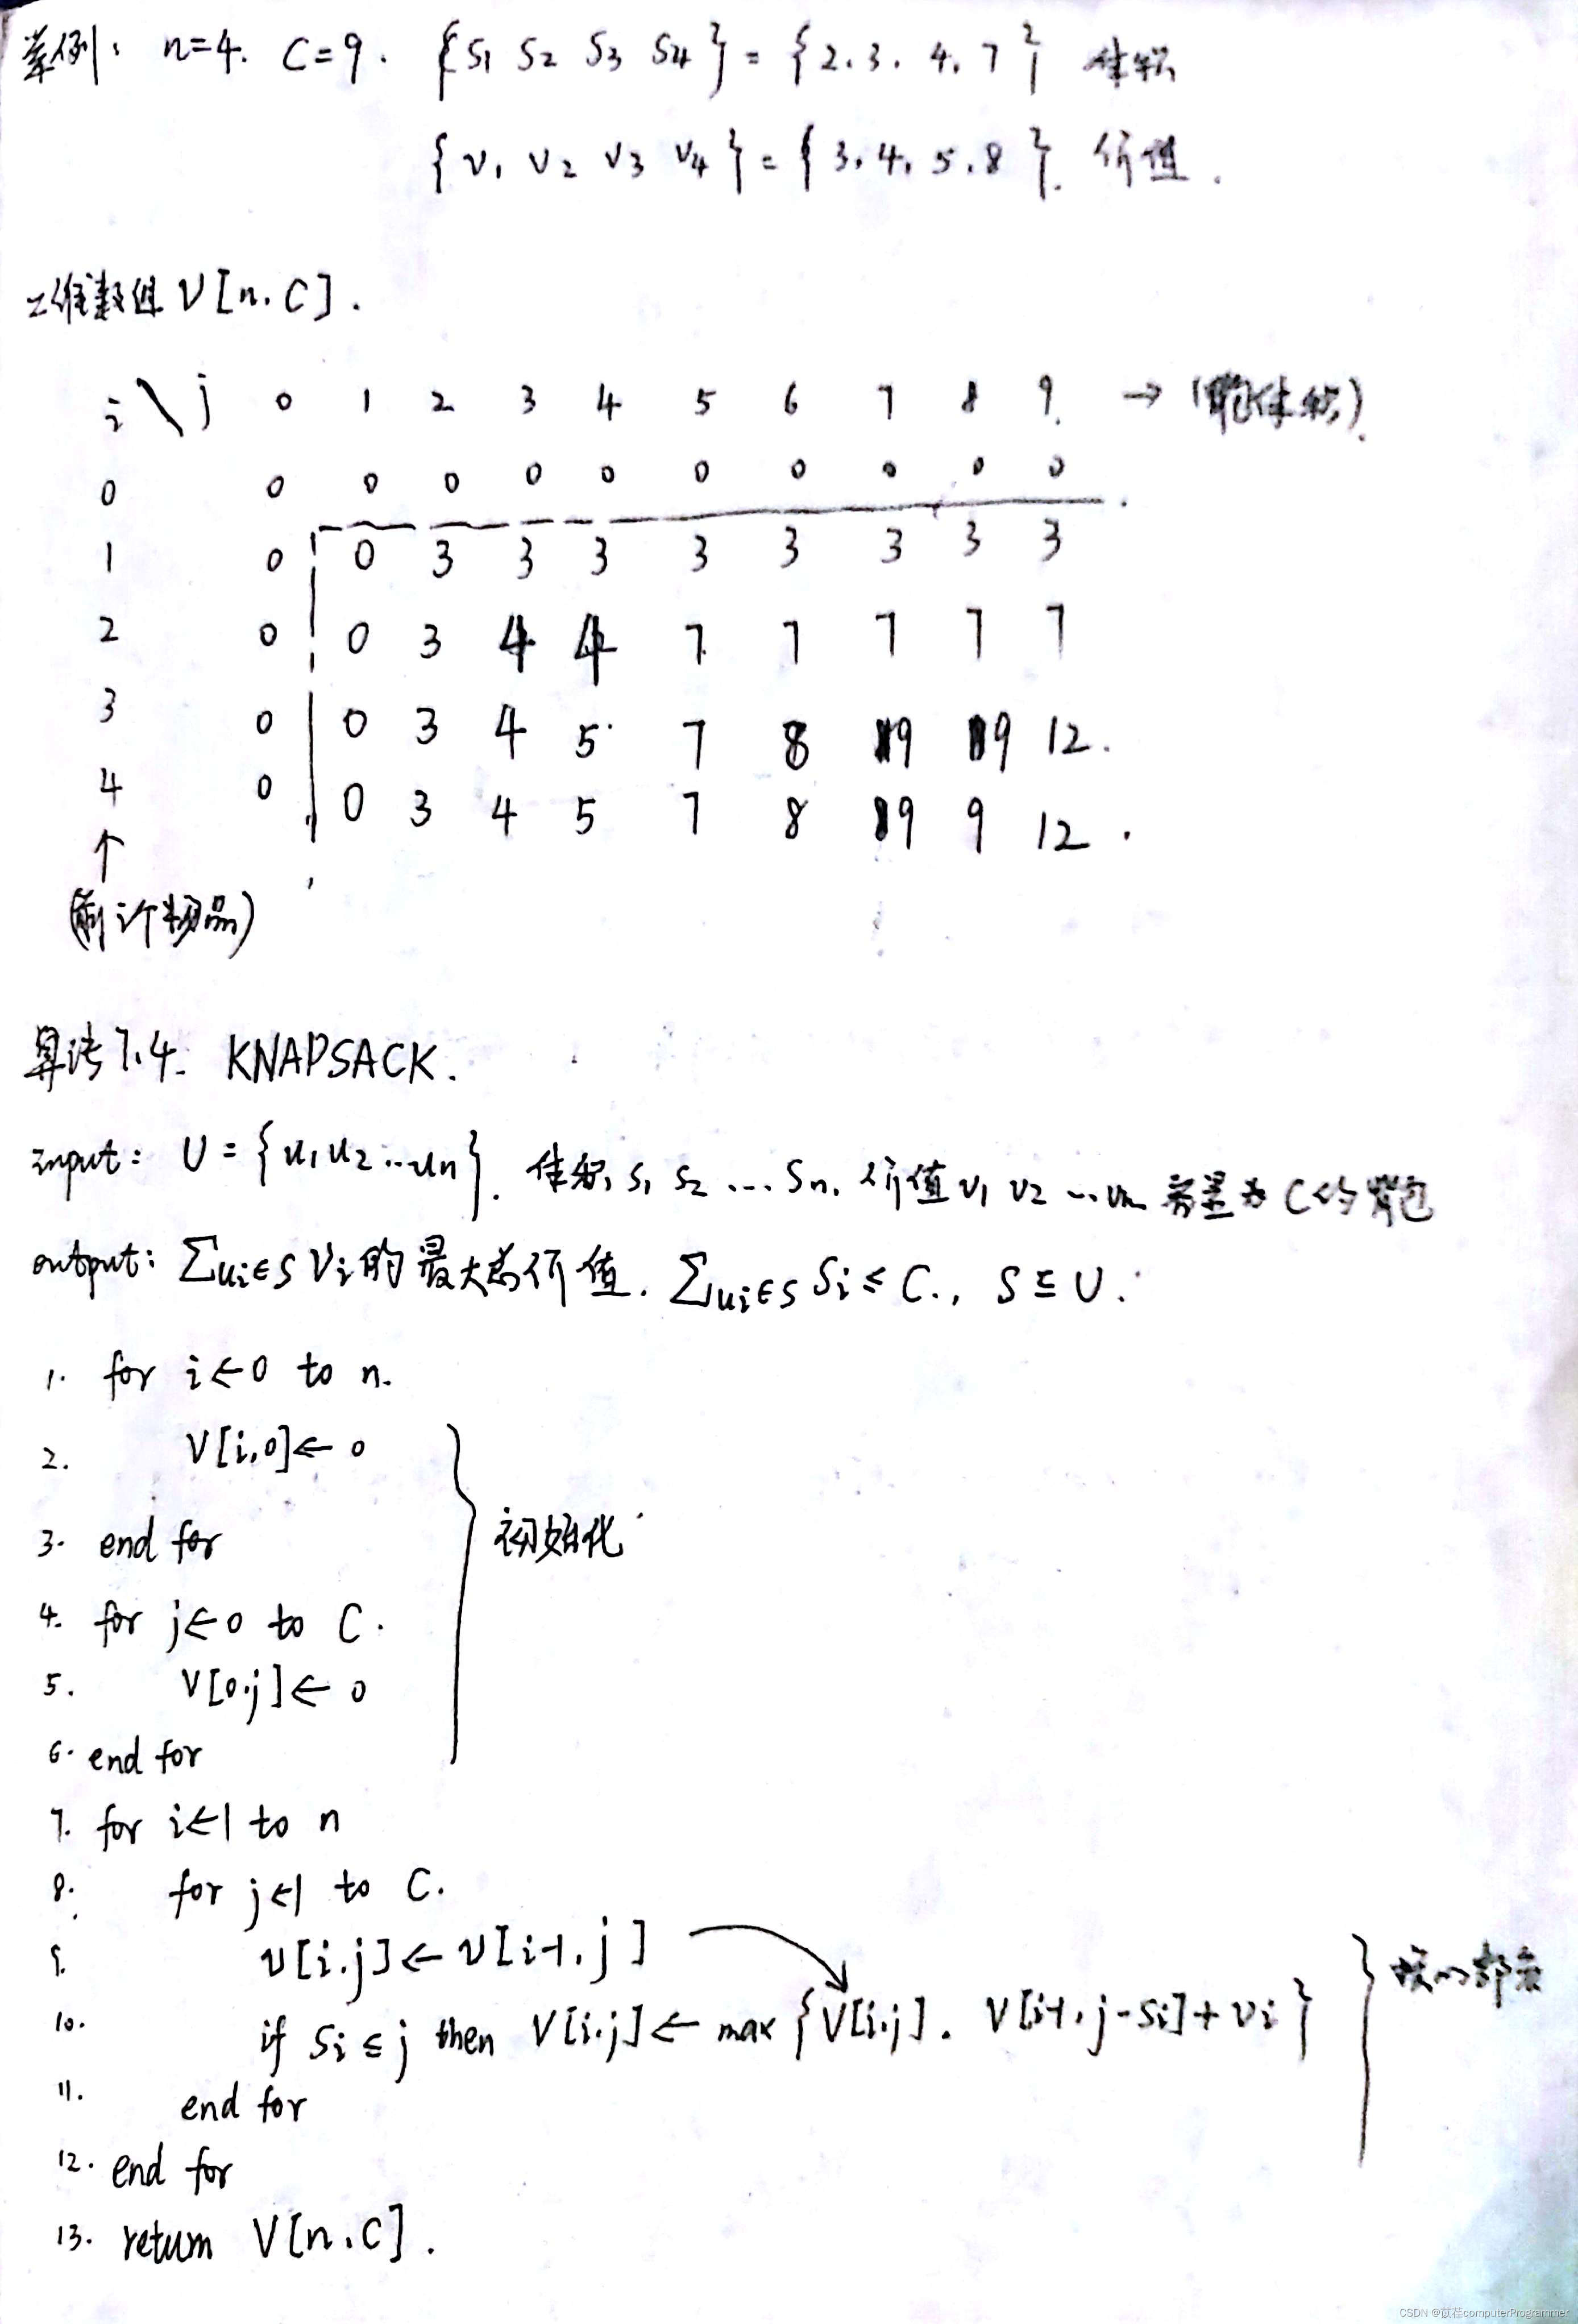 举例: n=4. C=9. {S1 S2 S3 S4} = {2.3. 4. 7} 体积
{v1 v2 v3 v4} = {3.4.5.8}. 价值.
二维数组 V[n.C].
i \ j 0 1 2 3 4 5 6 7 8 9. → (背包体积).
0 0 0 0 0 0 0 0 0 0 0
1 0 0 3 3 3 3 3 3 3 3
2 0 0 3 4 4 7 7 7 7 7
3 0 0 3 4 5 7 8 9 9 12.
4 0 0 3 4 5 7 8 9 9 12.
↑
(前i个物品)
算法7.4. KNAPSACK.
input: U = {u1 u2 ... un}. 体积 s1 s2 ... sn. 价值 v1 v2 ... vn 容量为C的背包
output: ∑ui∈S Vi的最大总价值. ∑ui∈S Si ≤ C., S ⊆ U.
1. for i←0 to n.
2. V[i,0]← 0
3. end for 初始化
4. for j←0 to C.
5. V[0.j]← 0
6. end for
7. for i←1 to n
8. for j←1 to C.
9. V[i.j]← V[i-1.j]
核心部分
10. if Si ≤ j then V[i.j]← max {V[i.j]. V[i-1.j-Si]+Vi}
11. end for
12. end for
13. return V[n.C].
CSDN @苡荏computerProgrammer